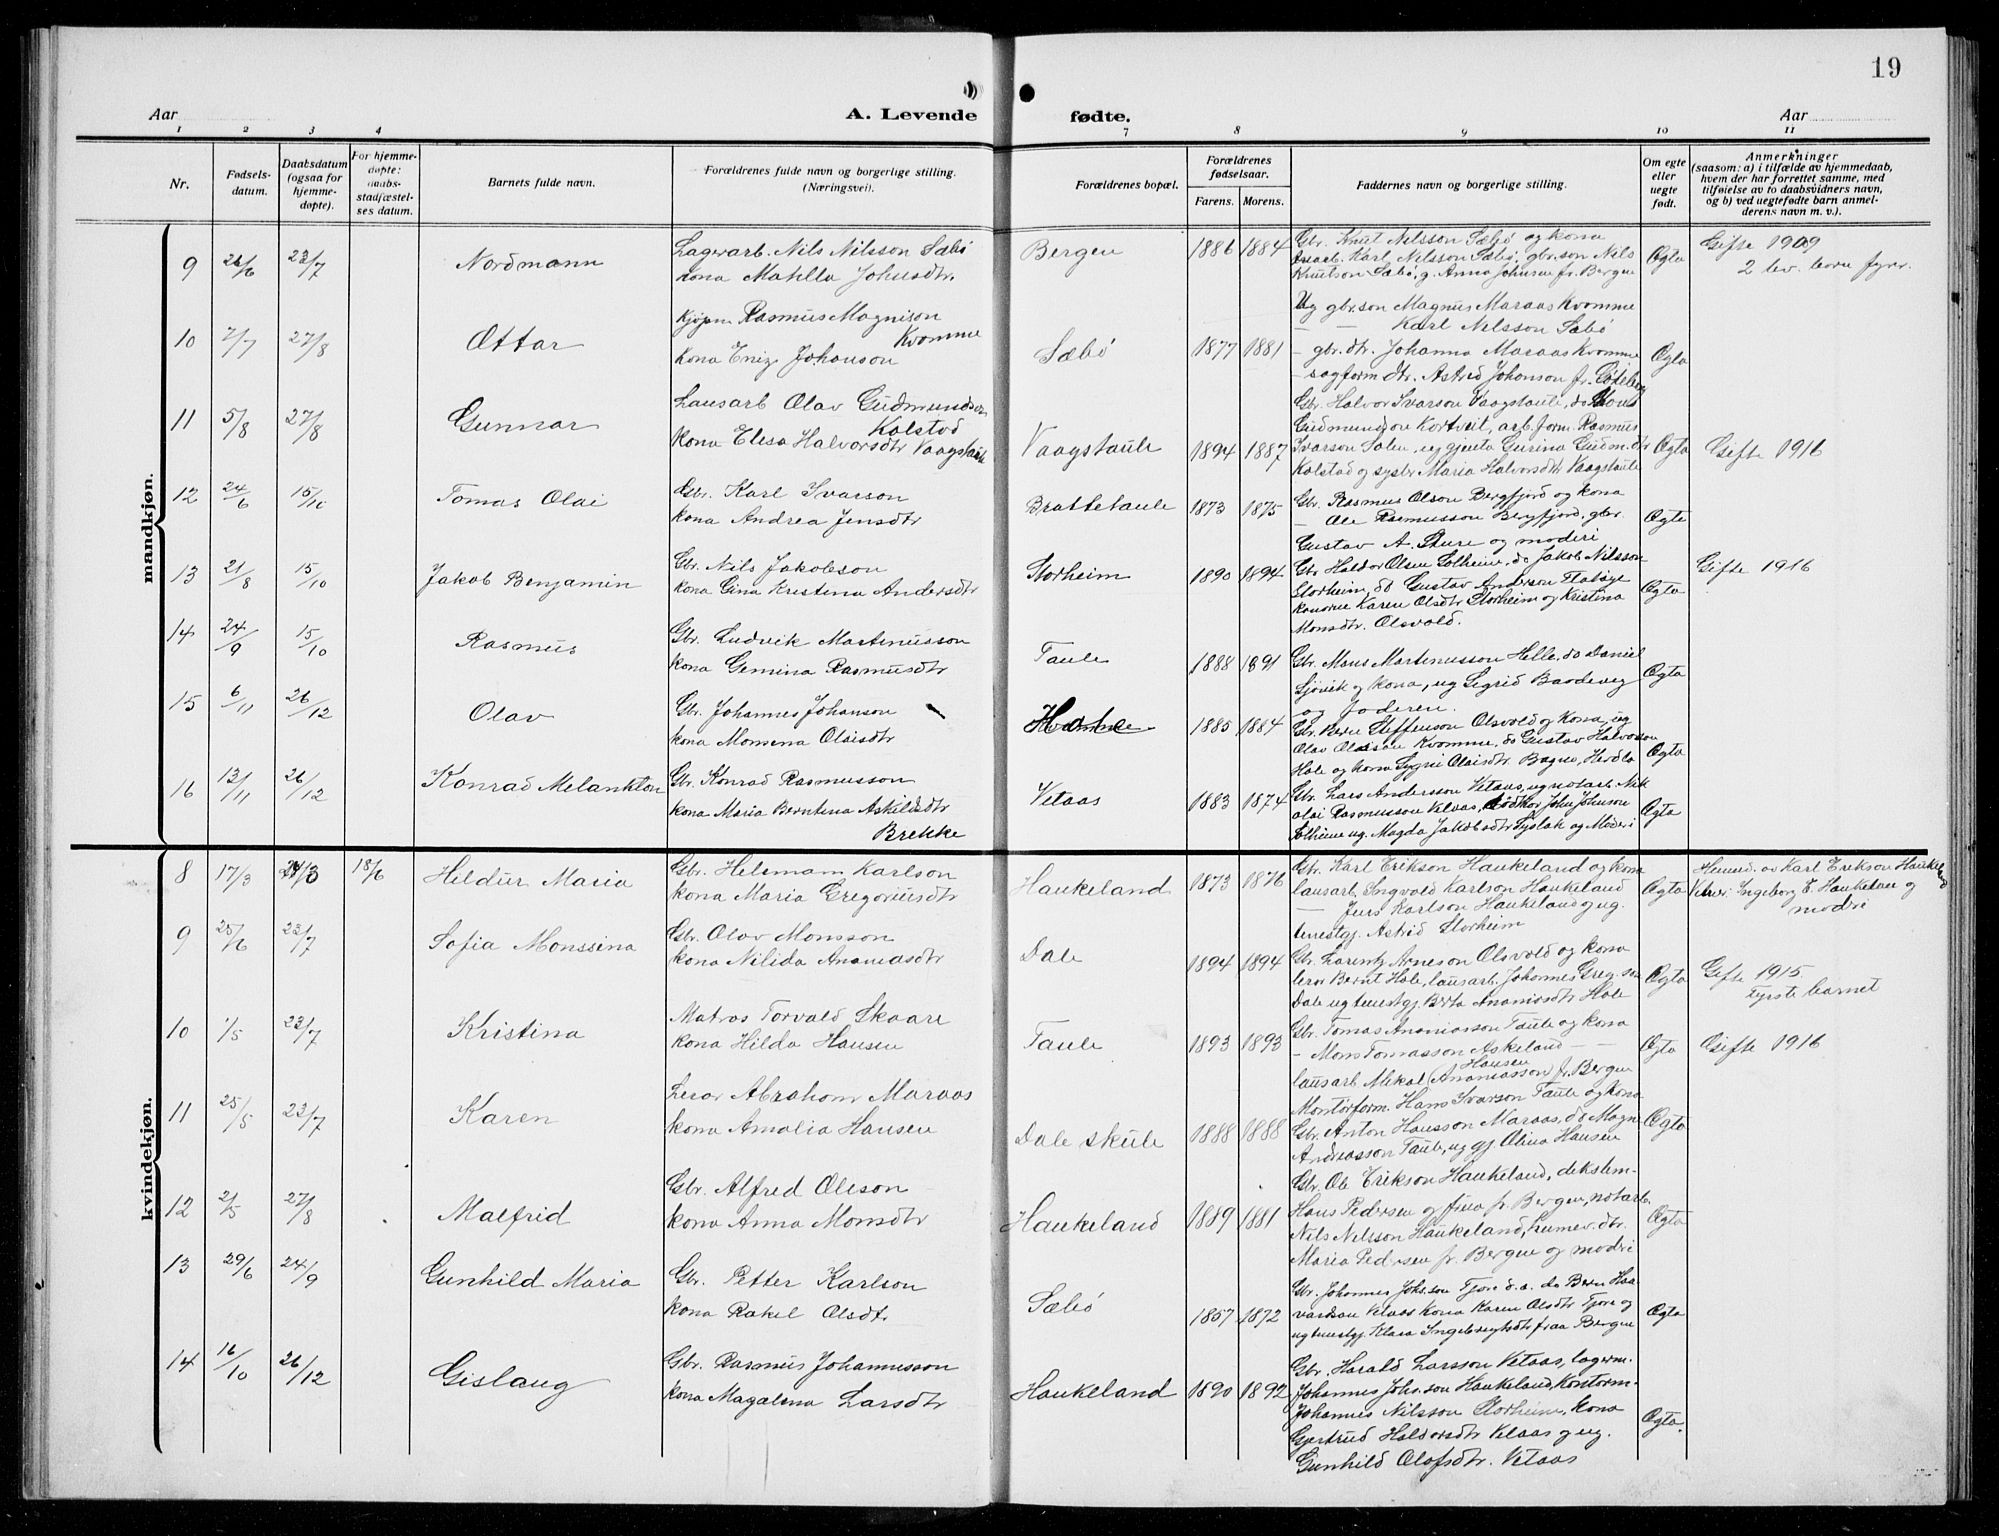 19
Aar
A. Levende
fødte.
Aar
1 2 3 4 7 8 9 10 11
Nr.
Fødsels-
datum.
Daabsdatum
(ogsaa for
hjemme-
døpte).
For hjemme-
døpte:
daabs-
stadfæstel-
ses datum.
Barnets fulde navn.
Forældrenes fulde navn og borgerlige stilling.
(Næringsvei).
Forældrenes bopæl.
Forældrenes
fødselsaar.
Farens. Morens.
Faddernes navn og borgerlige stilling.
Om egte
eller
uegte
født.
Anmerkninger
(saasom: a) i tilfælde av hjemmedaab,
hvem der har forrettet samme, med
tilføielse av to daabsvidners navn,
og b) ved uegtefødte barn anmel-
derens navn m. v.).
mandkjøn.
9 23/7 Nordmann
Lagerarb. Nils Nilsson Sæbö
kona Matilla Johnsdtr.
Bergen 1886 1884
Gbr. Knut Nilsson Sæbö og kona
Karl Nilsson Sæbö, gbr.son Nils
Knutson Sæbö, g. Anna Johnsen fr. Bergen
Ögta
Gifte 1909
2 lev. born fyrr.
10 7/7 27/8 Ottar
Kjöpm Rasmus Magnison
Kvomme
Kona Johanson
Sæbö 1877 1881
Ug gbr.son Magnus Maraas Kvomme
— — Karl Nilsson Sæbö
— gbr.dtr. Johanna Maraas Kvomme
— sagform dtr. Astrid Johanson fr. Göteborg
Ögta
11 5/8 27/8 Gunnar
Lausarb Olav Gudmundson
Kolstod
Kona Elesa Halvorsdtr Vaagstaule
Vaagstaule 1894 1887
Gbr. Halvor Ivarson Vaagstaule, do Mons
Gudmundson Kortveit, arb.form. Rasmus
Ivarson Solen, ug gjenta Gurina Gudm.dtr
Kolstad og systr Maria Halvorsdtr Vaagstaule
Ögta
Gifte 1916
12 24/6 15/10 Tomas Olai
Gbr. Karl Ivarson
kona Andrea Jensdtr
Brattetaule 1873 1875
Gbr. Rasmus Olson Bergfjord og kona
— Ole Rasmusson Bergfjord, gbr.
Gustav A. Sture og moderi
Ögte
13 21/8 15/10 Jakob Benjamin
Gbr. Nils Jakobson
kona Gina Kristina Andersdtr
Storheim 1890 1894
Gbr Haldor Olsen Solheim, do Jakob Nilsson
Storheim, do Gustav Anderson Flatöye
konorne Karen Olsdtr Storheim og Kristina
Monsdtr. Olsvold.
Ögta
Gifte 1916
14 24/9 15/10 Rasmus
Gbr. Ludvik Martinusson
kona Gemina Rasmusdtr
Taule 1888 1891
Gbr. Mons Martinusson Helle, do Daniel
Sjövik og kona, ug Sigrid Baodeveg
og faderen.
Ögta
15 6/11 26/12 Olav
Gbr. Johannes Johanson
kona Momena Olaisdtr
1885 1884
Gbr. Bern Steffenson Olsvold og kona, ug
Olav Olaison Kvomme, do Gustav Halvorson
Hole og kona Sygni Olaisdtr Bagne, Herdla
Ögta
16 13/11 26/12 Konrad Melankton
Gbr. Konrad Rasmusson
kona Maria Berntina Askildsdtr
Brekke
Vetaas 1883 1874
Gbr. Lars Andersson Vetaas, ug notarb. Nik
olai Rasmusson Vetaas, John Johnson
Solheim ug. Magda Jakobsdtr Tyslak og Moderi
Ögta
kvindekjøn.
8 17/3 18/6 Hildur Maria
Gbr. Helemam Karlson
kona Maria Gregoriusdtr
Haukeland 1873 1876
Gbr. Karl Erikson Haukeland og kona
lausarb. Ingvald Karlson Haukeland
— Jens Karlson Haukeland og ug.
tenestgj. Astrid Storheim
Ögta
Heimd. av Karl Erikson Haukeland
Vitner: Ingeborg E. Haukeland og
modri
9 25/6 23/7 Sofia Monssina
Gbr. Olav Monsson
kona Nilida Ananiasdtr
Dale 1894 1894
Gbr. Larents Arneson Olsvold og kona
lerar Bernt Hole, lausarb. Johannes Greg.son
Dale ug tenestgj. Berta Ananiasdtr Hole
Ögta
Gifte 1915.
Fyrste barnet
10 1/5 23/7 Kristina
Matros Torvald Skaare
kona Hilda Hansen
Taule 1893 1893
Gbr. Tomas Ananiasson Taule og kona
— Mons Tomasson Askeland — —
Hansen
lausarb. Mikal (Ananiasson) fr. Bergen
Ögta
Gifte 1916
11 25/5 23/7 Karen
Lerar Abraham Maraas
kona Amalia Hansen
Dale skule 1888 1888
Montörform. Hans Ivarson Taule og kona
Gbr. Anton Hansson Maraas, do Magne
Andreasson Taule, ug gj. Olina Hansen
Ögta
12 2/5 27/8 Malfrid
Gbr. Alfred Oleson
kona Anna Monsdtr
Haukeland 1889 1881
Gbr. Ole Erikson Haukeland, dekslem-
Hans Pedersen og frua fr. Bergen, notarb.
Nils Nilsson Haukeland, dtr.
Maria Pedersen fr. Bergen og modri
Ögta
13 29/6 24/9 Gunhild Maria
Gbr. Petter Karlson
kona Rakel Olsdtr
Sæbö 1857 1872
Gbr. Johannes Johs.son Tjore d.a. do Bern Haa
vardson Vetaas Kona Karen Olsdtr Tjore og
ug tenestgj. Klara Ingebregtsdtr fraa Bergen
Ögta
14 16/10 26/12 Gislaug
Gbr. Rasmus Johannesson
kona Magalena Larsdtr
Haukeland 1890 1892
Gbr. Harald Larsson Vetaas, lagerm.
Johannes Johs.son Haukeland, Kontorm.
Johannes Nilsson Storheim, kona
Gjertrud Haldorsdtr Vetaas og ug.
Gunhild Olafsdtr. Vetaas
Ögta.